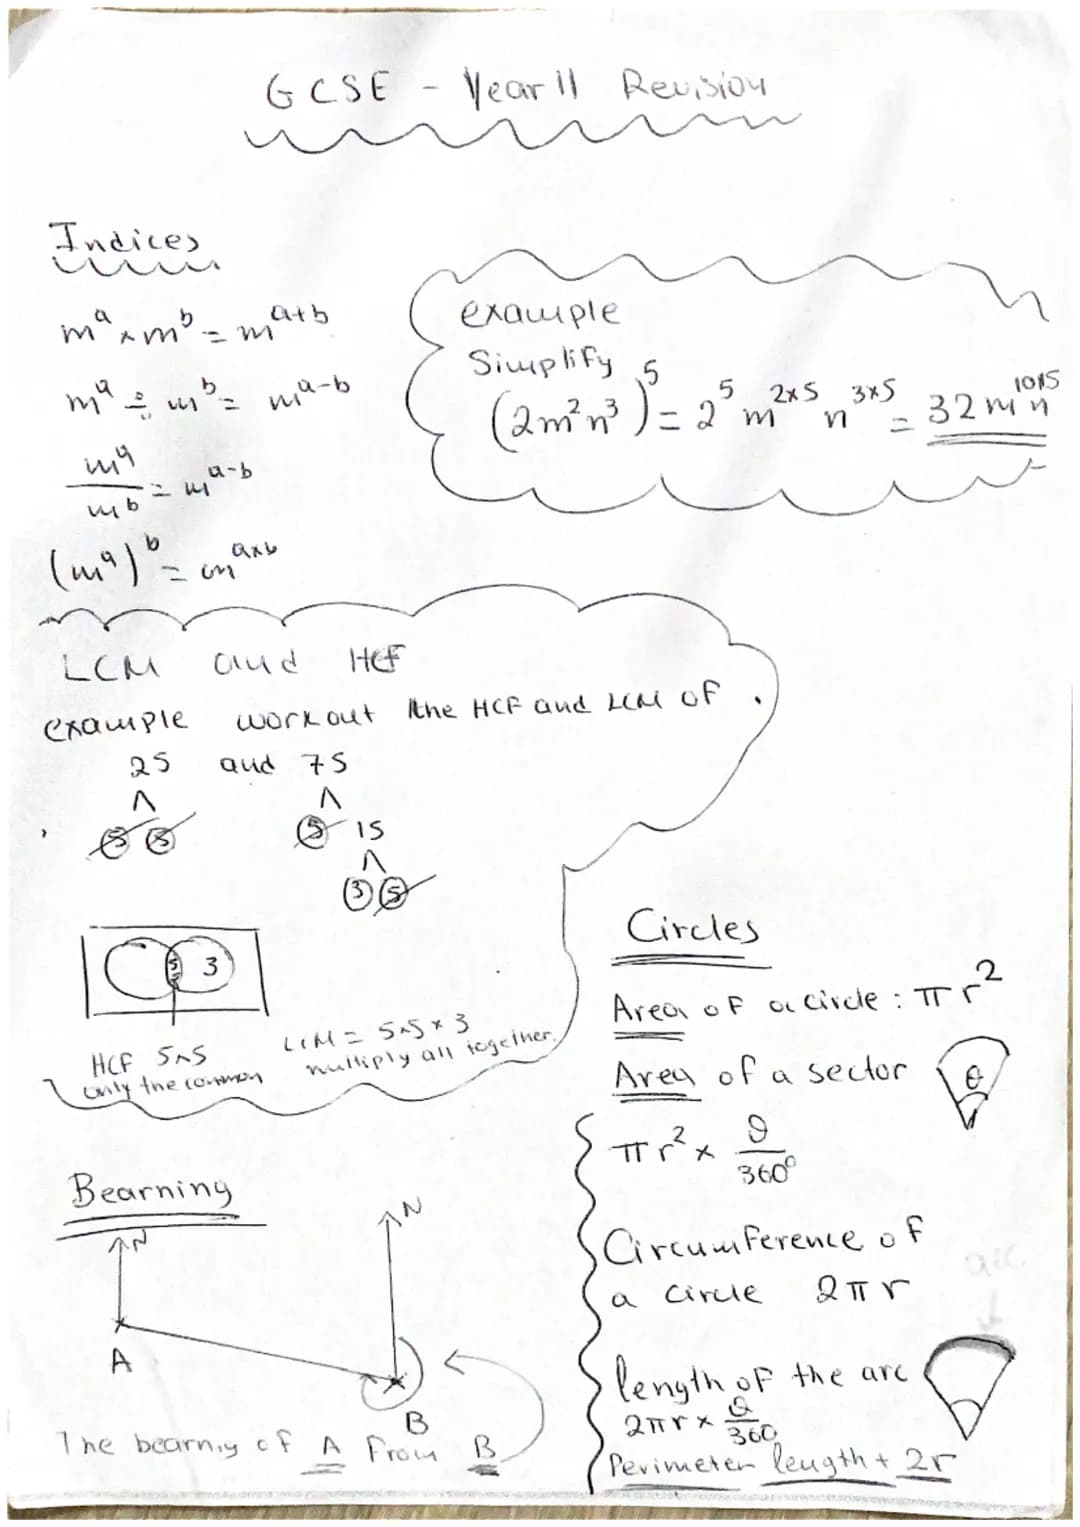 GCSE - Year 11 Revision
Indices
mᵃ × mᵇ = mᵃ⁺ᵇ
mᵃ ÷ mᵇ = mᵃ⁻ᵇ
mᵃ/mᵇ = mᵃ⁻ᵇ
(mᵃ)ᵇ = mᵃˣᵇ
example
Simplify
(2m²n³)⁵ = 2⁵ m²ˣ⁵ n³ˣ⁵ = 32m¹⁰n¹⁵
LCM and HCF
example workout the HCF and LCM of
25 and 75
5 5 5 15
3 5
5 3
5
HCF 5×5
only the common
LCM = 5×5×3
multiply all together.
Circles
Area of a circle : πr²
Area of a sector
θ
πr² × θ/360°
Circumference of
a circle 2πr
arc
length of the arc
2πr × θ/360
Perimeter length + 2r
Bearning
N N
A
B
The bearnig of A From B